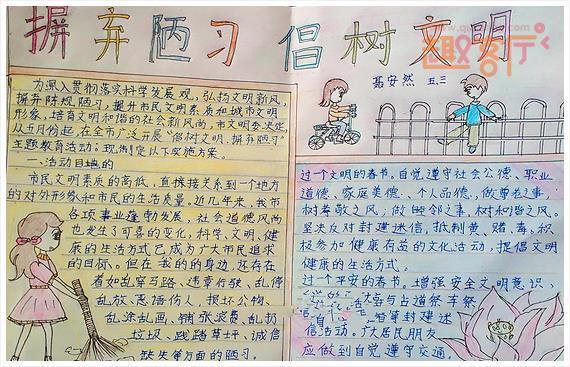 摒弃陋习 倡树文明
趣客厅
聂安然 五.三
为深入贯彻落实科学发展观,弘扬文明新风,
摒弃陈规陋习,提升市民文明素质和城市文明
形象,培育文明和谐的社会新风尚,市文明委决定
从五月份起,在全市广泛开展"倡树文明、摒弃陋习"
主题教育活动。现制定以下实施方案。
一.活动目地的
市民文明素质的高低,直接关系到一个地方
的对外形象和市民的生活质量。近几年来,我市
各项事业蓬勃发展,社会道德风尚
也发生了可喜的变化,科学、文明、健
康的生活方式已成为广大市民追求
的目标。但在我的的身边,还存在
着如乱穿马路、违章行驶、乱停
乱放、恶语伤人、损坏公物、
乱涂乱画、铺张浪费、乱扔
垃圾、践踏草坪、诚信
缺失等方面的陋习。
过一个文明的春节。自觉遵守社会公德、职业
道德、家庭美德、个人品德,做尊老之事,
树孝敬之风;做睦邻之事,树和谐之风。
坚决反对封建迷信,抵制黄、赌、毒,积
极参加健康有益的文化活动,提倡文明
健康的生活方式。
过一个平安的春节。增强安全文明意识,
占道祭车祭
等封建迷
信活动。广大居民朋友
应做到自觉遵守交通。